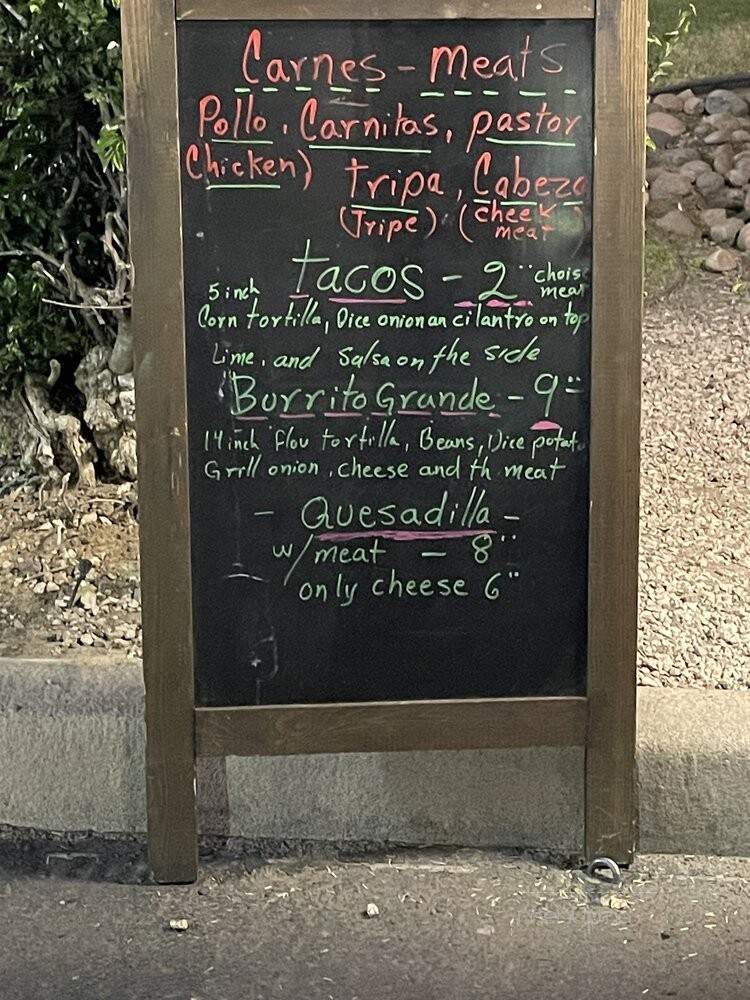 Carnes - Meats
Pollo, Carnitas, pastor
Chicken) tripa, Cabeza
(Tripe) (cheek meat)
tacos - 2¨ chois meat
5 inch
Corn tortilla, Dice onion an cilantro on top
Lime, and Salsa on the side
"Burrito Grande - 9¨
14 inch flou tortilla, Beans, Dice potato
Grill onion, cheese and th meat
- Quesadilla -
w/meat - 8¨
only cheese 6¨